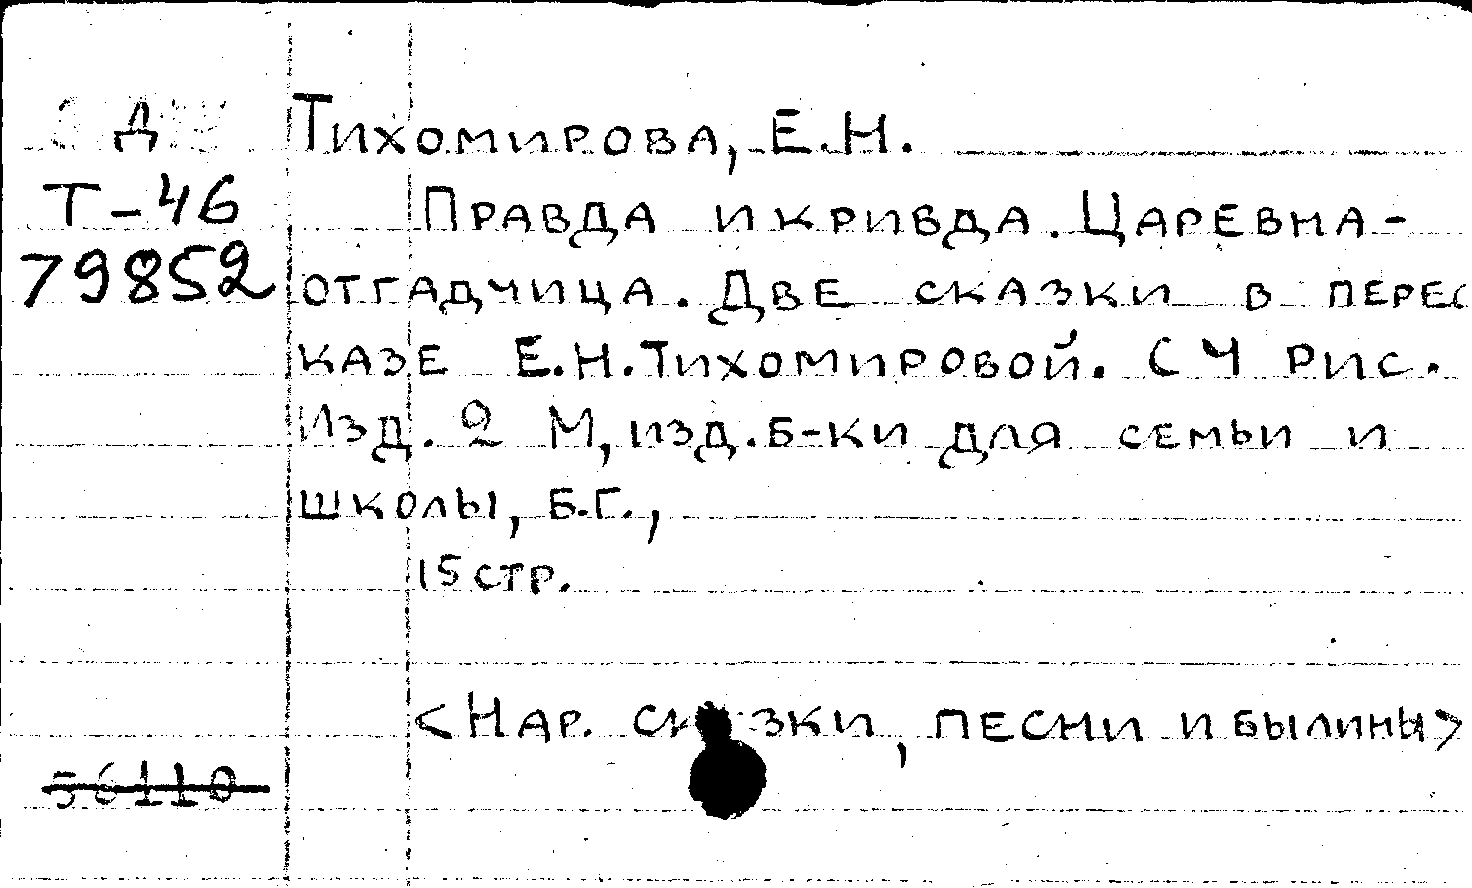 Д
Т-46
79852
Тихомирова, Е.Н.
Правда и кривда. Царевна-
отгадчица. Две сказки в перес
казе Е.Н.Тихомировой. С 4 рис.
Изд. 2 М, изд. б-ки для семьи и
школы, Б.Г.,
15 стр.
<Нар. сказки, песни и былины>
56110